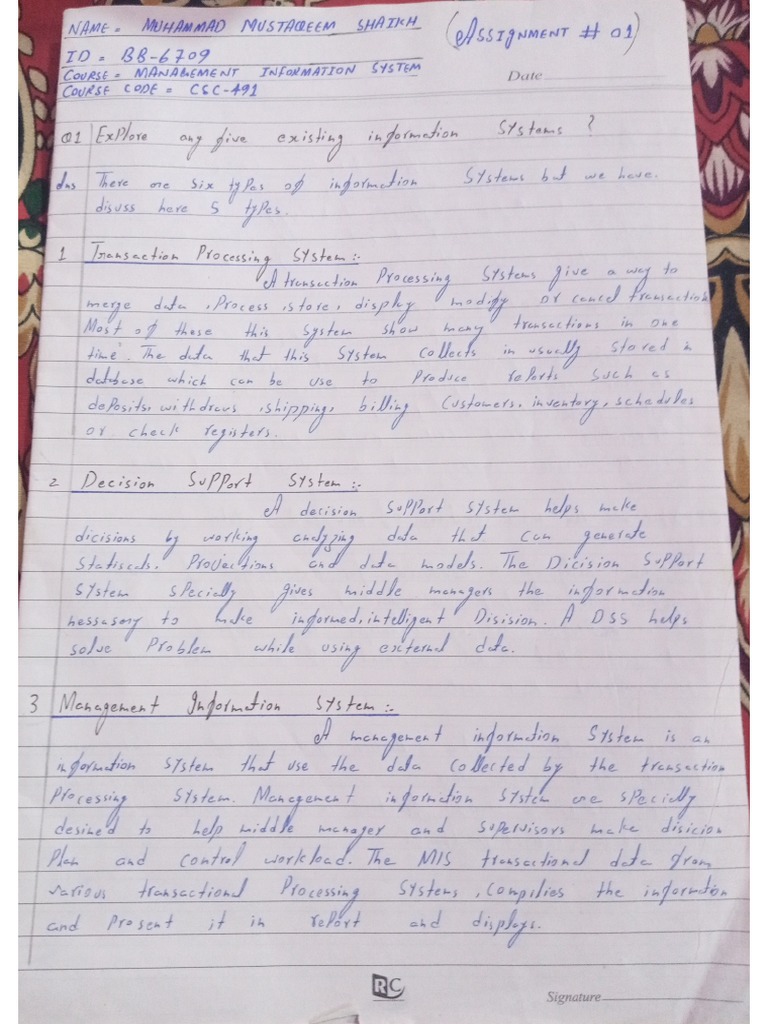 NAME = MUHAMMAD MUSTAQEEM SHAIKH
(ASSIGNMENT # 01)
ID = BB-6709
COURSE = MANAGEMENT INFORMATION SYSTEM
COURSE CODE = CSC-491
Date
Q1 Explore any five existing information Systems ?
Ans There are six types of information Systems but we have.
disuss here 5 types.
1 Transaction Processing System:-
A transaction Processing Systems give a way to
merge data, Process, store, display modify or cancel transaction
Most of these this System show many transactions in one
time. The data that this System collects in usually stored in
database which can be use to Produce reports such as
deposits, withdraws, shipping, billing customers, inventory, schedules
or check registers.
2 Decision Support System:-
A decision support system helps make
dicisions by working analyzing data that can generate
Statiscals. Projections and data models. The Dicision Support
System specially gives middle managers the information
nessasory to make informed, intelligent Disision. A DSS helps
solve Problem while using external data.
3 Management Information System:-
A management information System is an
information System that use the data collected by the transaction
Processing System. Management information System are specially
desined to help middle manager and supervisors make disicion
Plan and control workload. The MIS transactional data from
various transactional Processing Systems, compilies the information
and Present it in report and displays.
RC
Signature